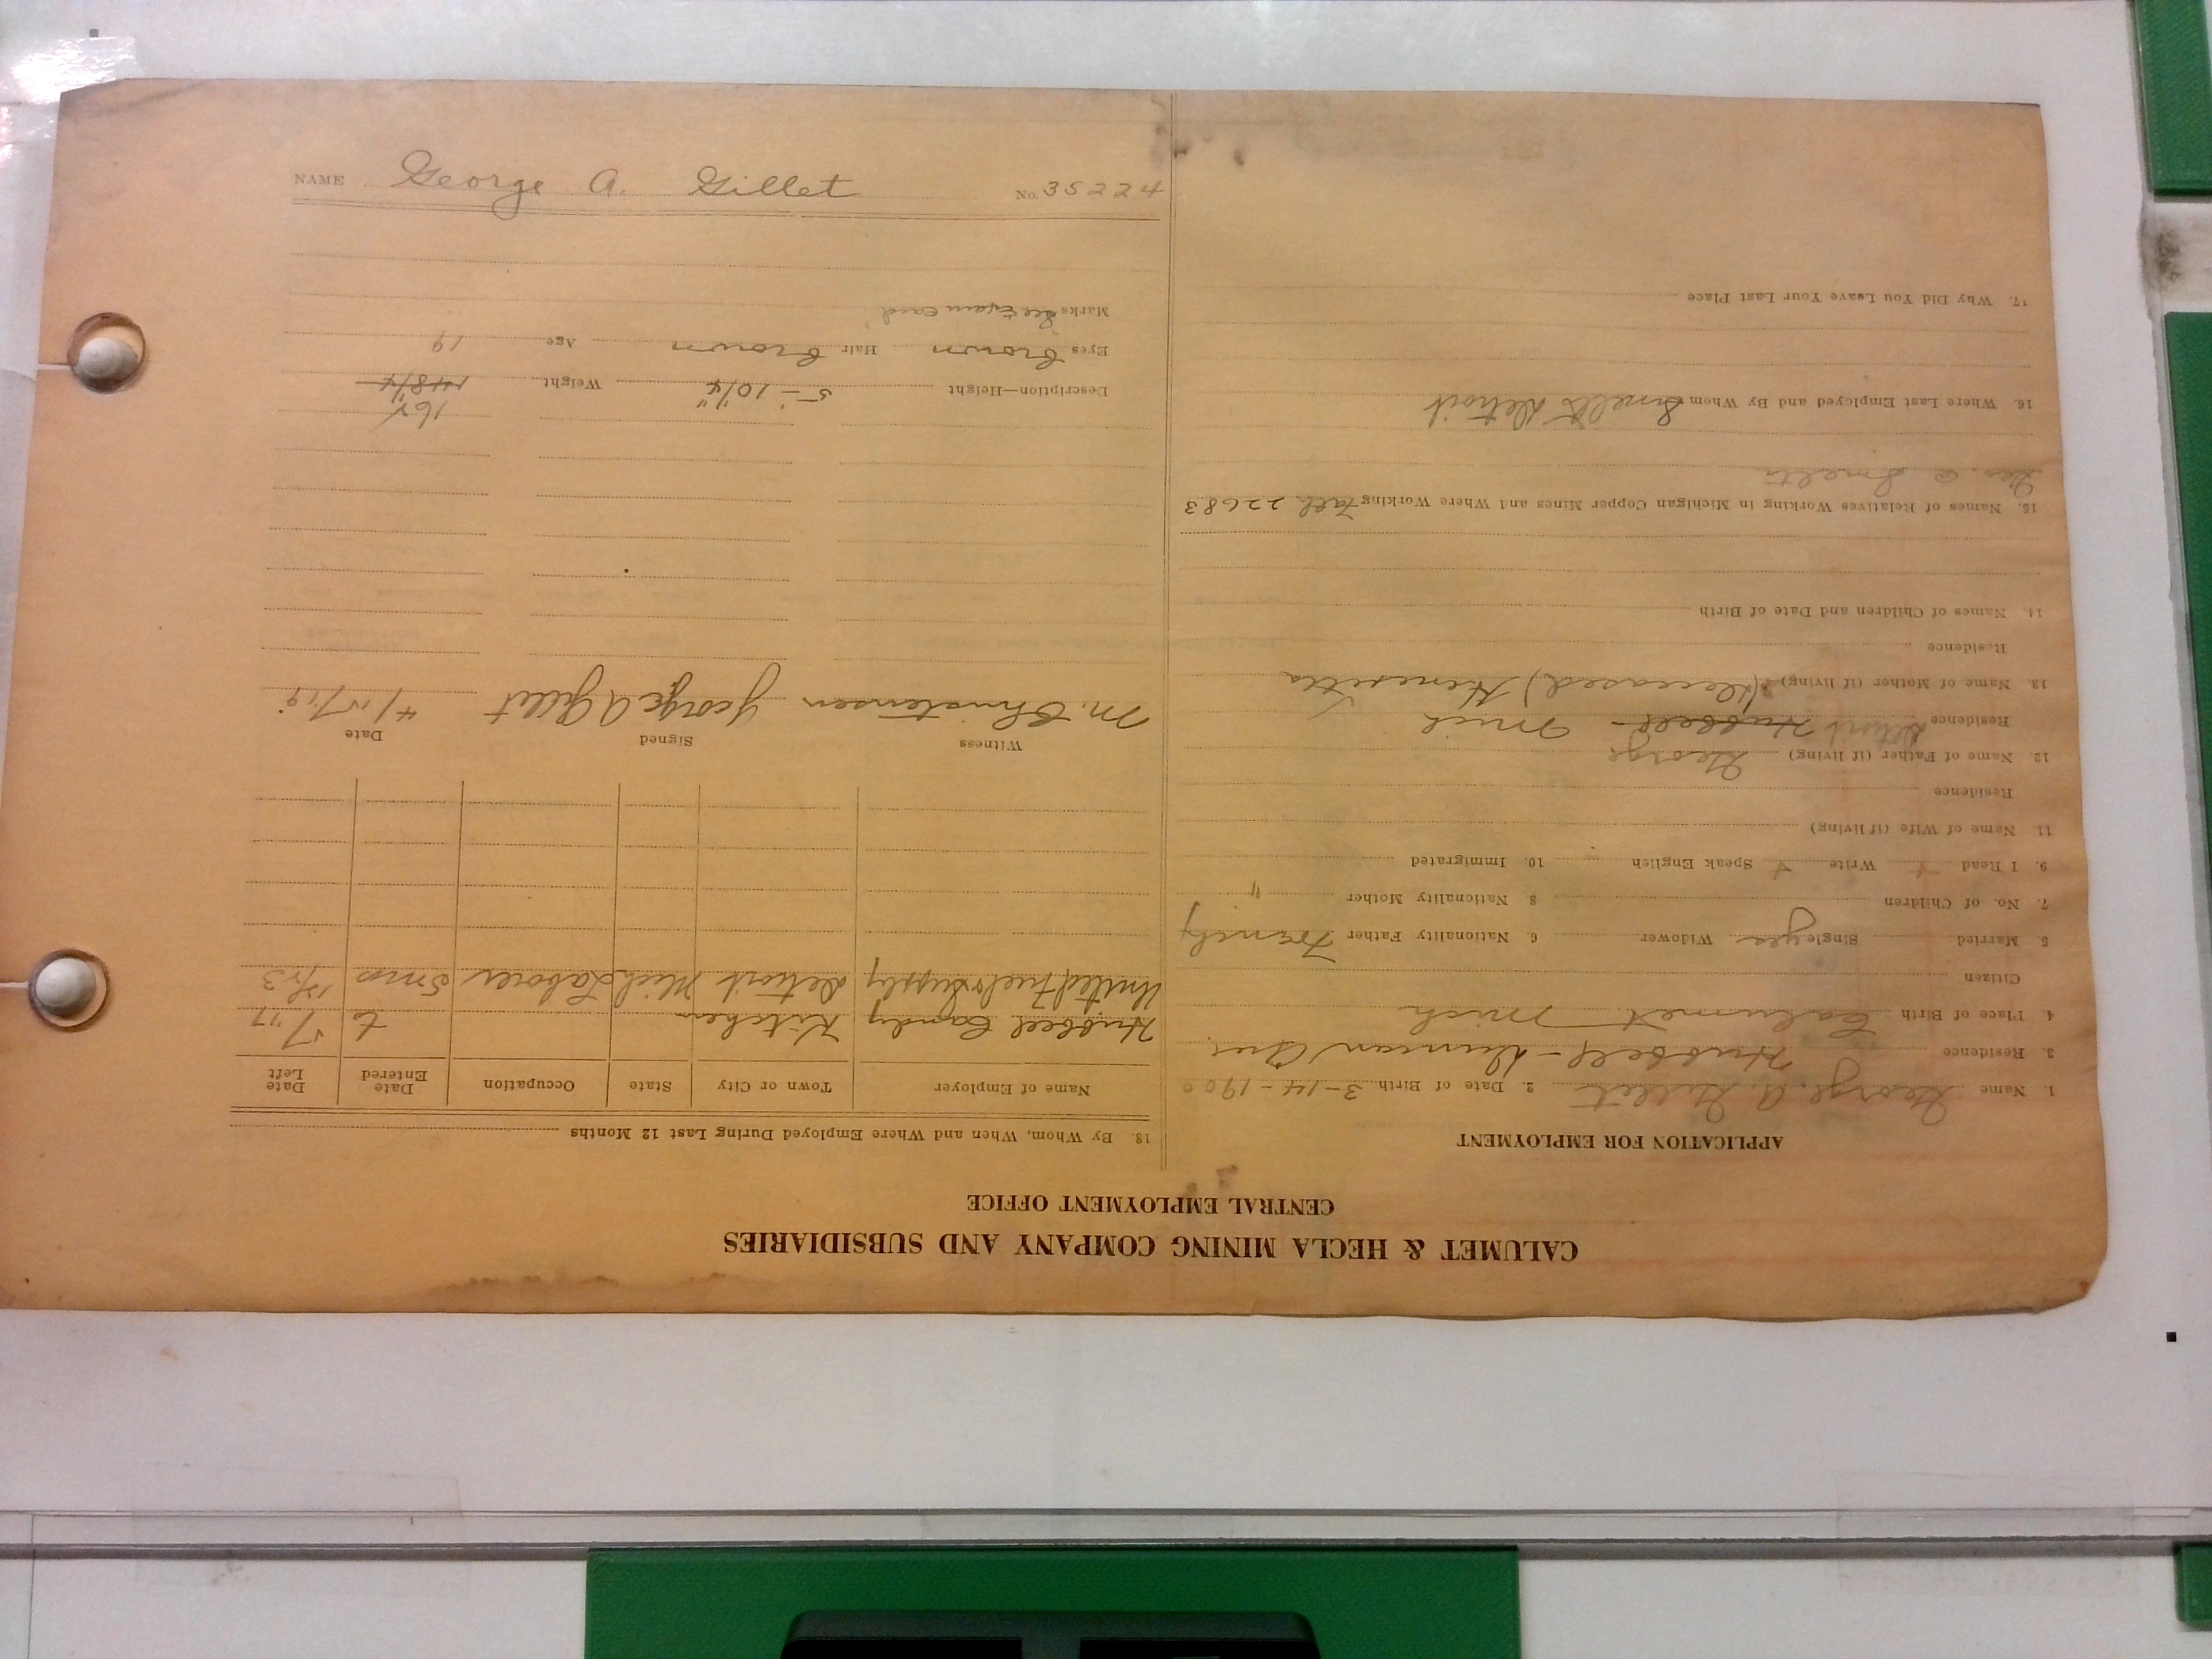 CALUMET & HECLA MINING COMPANY AND SUBSIDIARIES
CENTRAL EMPLOYMENT OFFICE
APPLICATION FOR EMPLOYMENT
1. Name George A. Gillet 2. Date of Birth 3-14-1900
3. Residence Hubbell - Duncan Ave.
4. Place of Birth Calumet Mich
Citizen
5. Married Single yes Widower 6. Nationality Father French
7. No. of Children 8 Nationality Mother "
9. I Read Write Speak English 10. Immigrated
11. Name of Wife (if living)
Residence
12. Name of Father (if living) George
Residence Detroit Hubbell - Mich
13. Name of Mother (if living) (Deceased) Henrietta
Residence
14. Names of Children and Date of Birth
15. Names of Relatives Working in Michigan Copper Mines and Where Working Fath 22683
Geo. Smelts
16. Where Last Employed and By Whom Smelts Detroit
17. Why Did You Leave Your Last Place
18. By Whom, When and Where Employed During Last 12 Months
Name of Employer Town or City State Occupation Date Entered Date Left
Hubbell Candy Kitchen to
United Fuel & Supply Detroit Mich Laborer 5 mos
Witness Signed Date
M. Christensen George A Gillet
162
Description—Height 5'-10 1/4" Weight 148 1/4
Eyes Brown Hair Brown Age 19
Marks See Exam Card
NAME George A. Gillet No. 35224